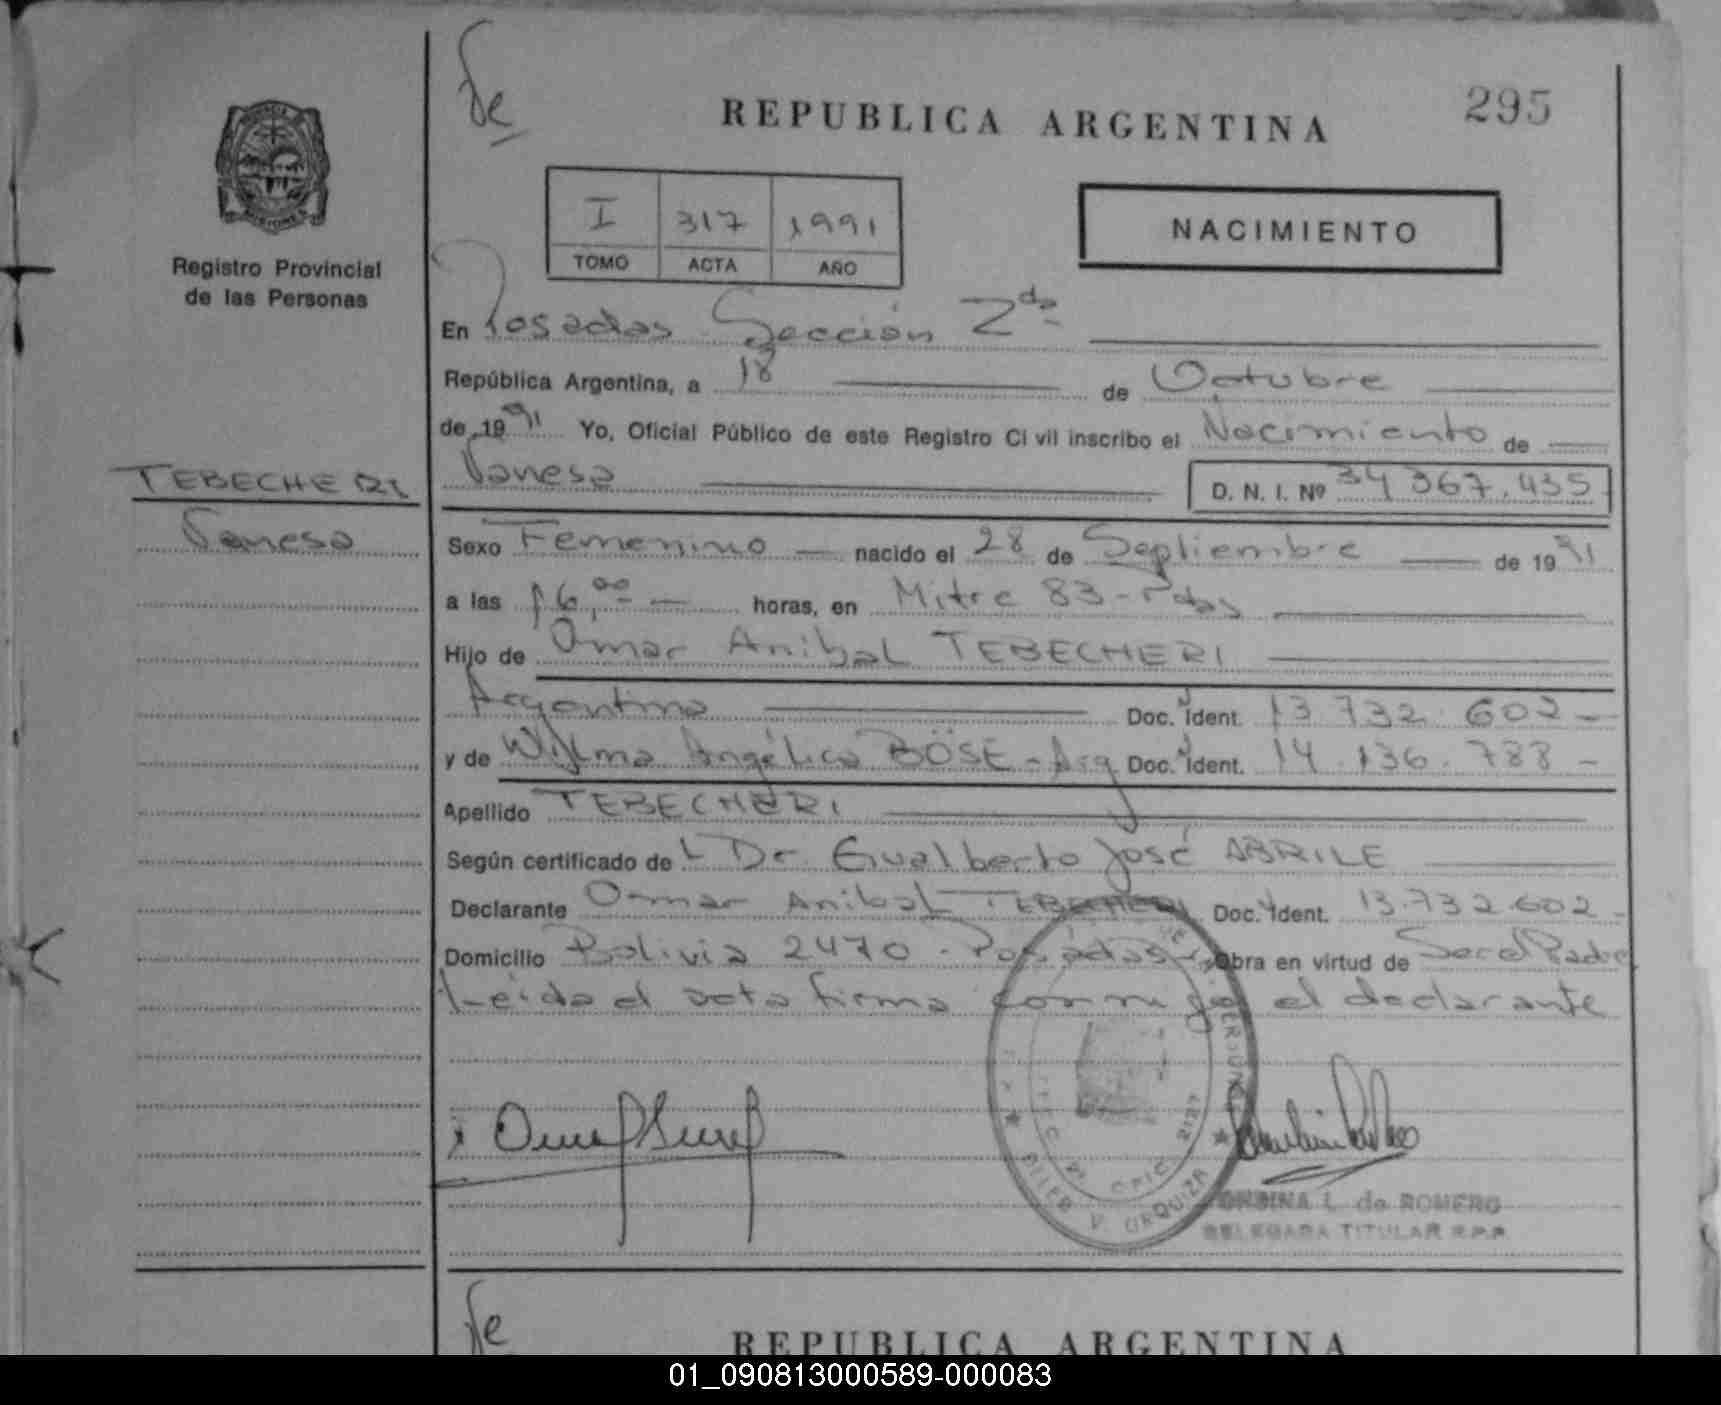 295
REPUBLICA ARGENTINA
I 317 1991
TOMO ACTA AÑO
NACIMIENTO
Registro Provincial
de las Personas
En Posadas Sección 2da
República Argentina, a 18 de Octubre
de 1991 Yo, Oficial Público de este Registro Civil inscribo el Nacimiento de
TEBECHERI
Vanesa
Vanesa D. N. I. Nº 34 367.435
Sexo Femenino nacido el 28 de Septiembre de 1991
a las 16,00 horas, en Mitre 83 - Pdas
Hijo de Omar Anibal TEBECHERI
Argentino Doc. Ident. 13 732. 602 -
y de Wilma Angélica BÖSE - Arg Doc. Ident. 14.136.788 -
Apellido TEBECHERI
Según certificado de L Dr. Gualberto José ABRILE
Declarante Omar Anibal TEBECHERI Doc. Ident. 13.732.602 -
Domicilio Bolivia 2470 - Posadas - Obra en virtud de Ser el Padre
Leida el acta firma conmigo el declarante
URQUIZA
ONDINA L. de ROMERO
DELEGADA TITULAR R.P.P.
REPUBLICA ARGENTINA
01_090813000589-000083